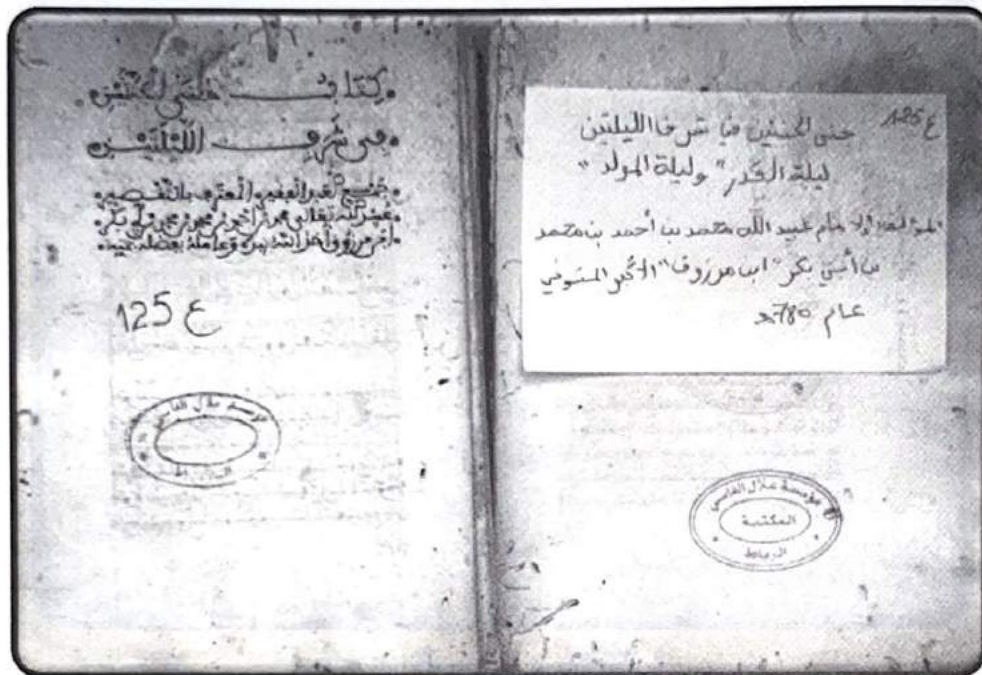 ع 125
جنى الجنتين في شرف الليلتين
ليلة القدر" وليلة المولد"
المؤلف: الإمام عبد الله محمد بن أحمد بن محمد
بن أبي بكر "ابن مرزوق" المتوفي
عام 780هـ
مؤسسة علال الفاسي
المكتبة
الرباط
كتاب جنى الجنتين
في شرف الليلتين
جمع العبد الفقير المعترف بالتقصير
عبد الله تعالى محمد بن أحمد بن محمد بن أبي بكر
بن مرزوق أخذ الله بيده وعامله بفضله
125 ع
مؤسسة علال الفاسي